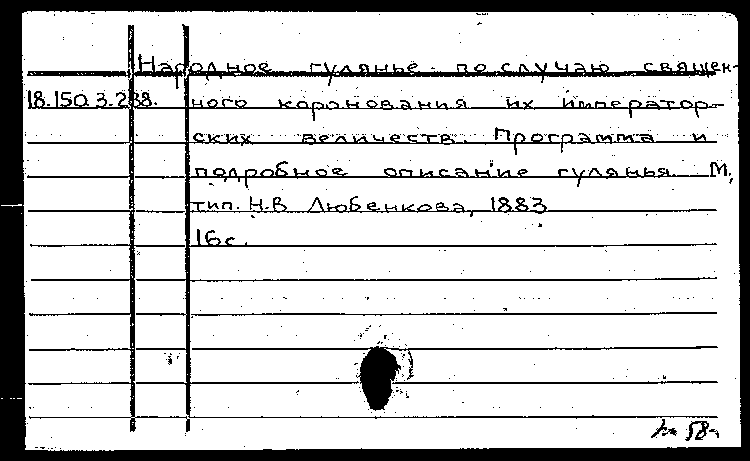 Народное гулянье по случаю священ-
18.150.3.238. ного коронования их император-
ских величеств. Программа и
подробное описание гулянья. М.,
тип. Н.В. Любенкова, 1883
16 с.